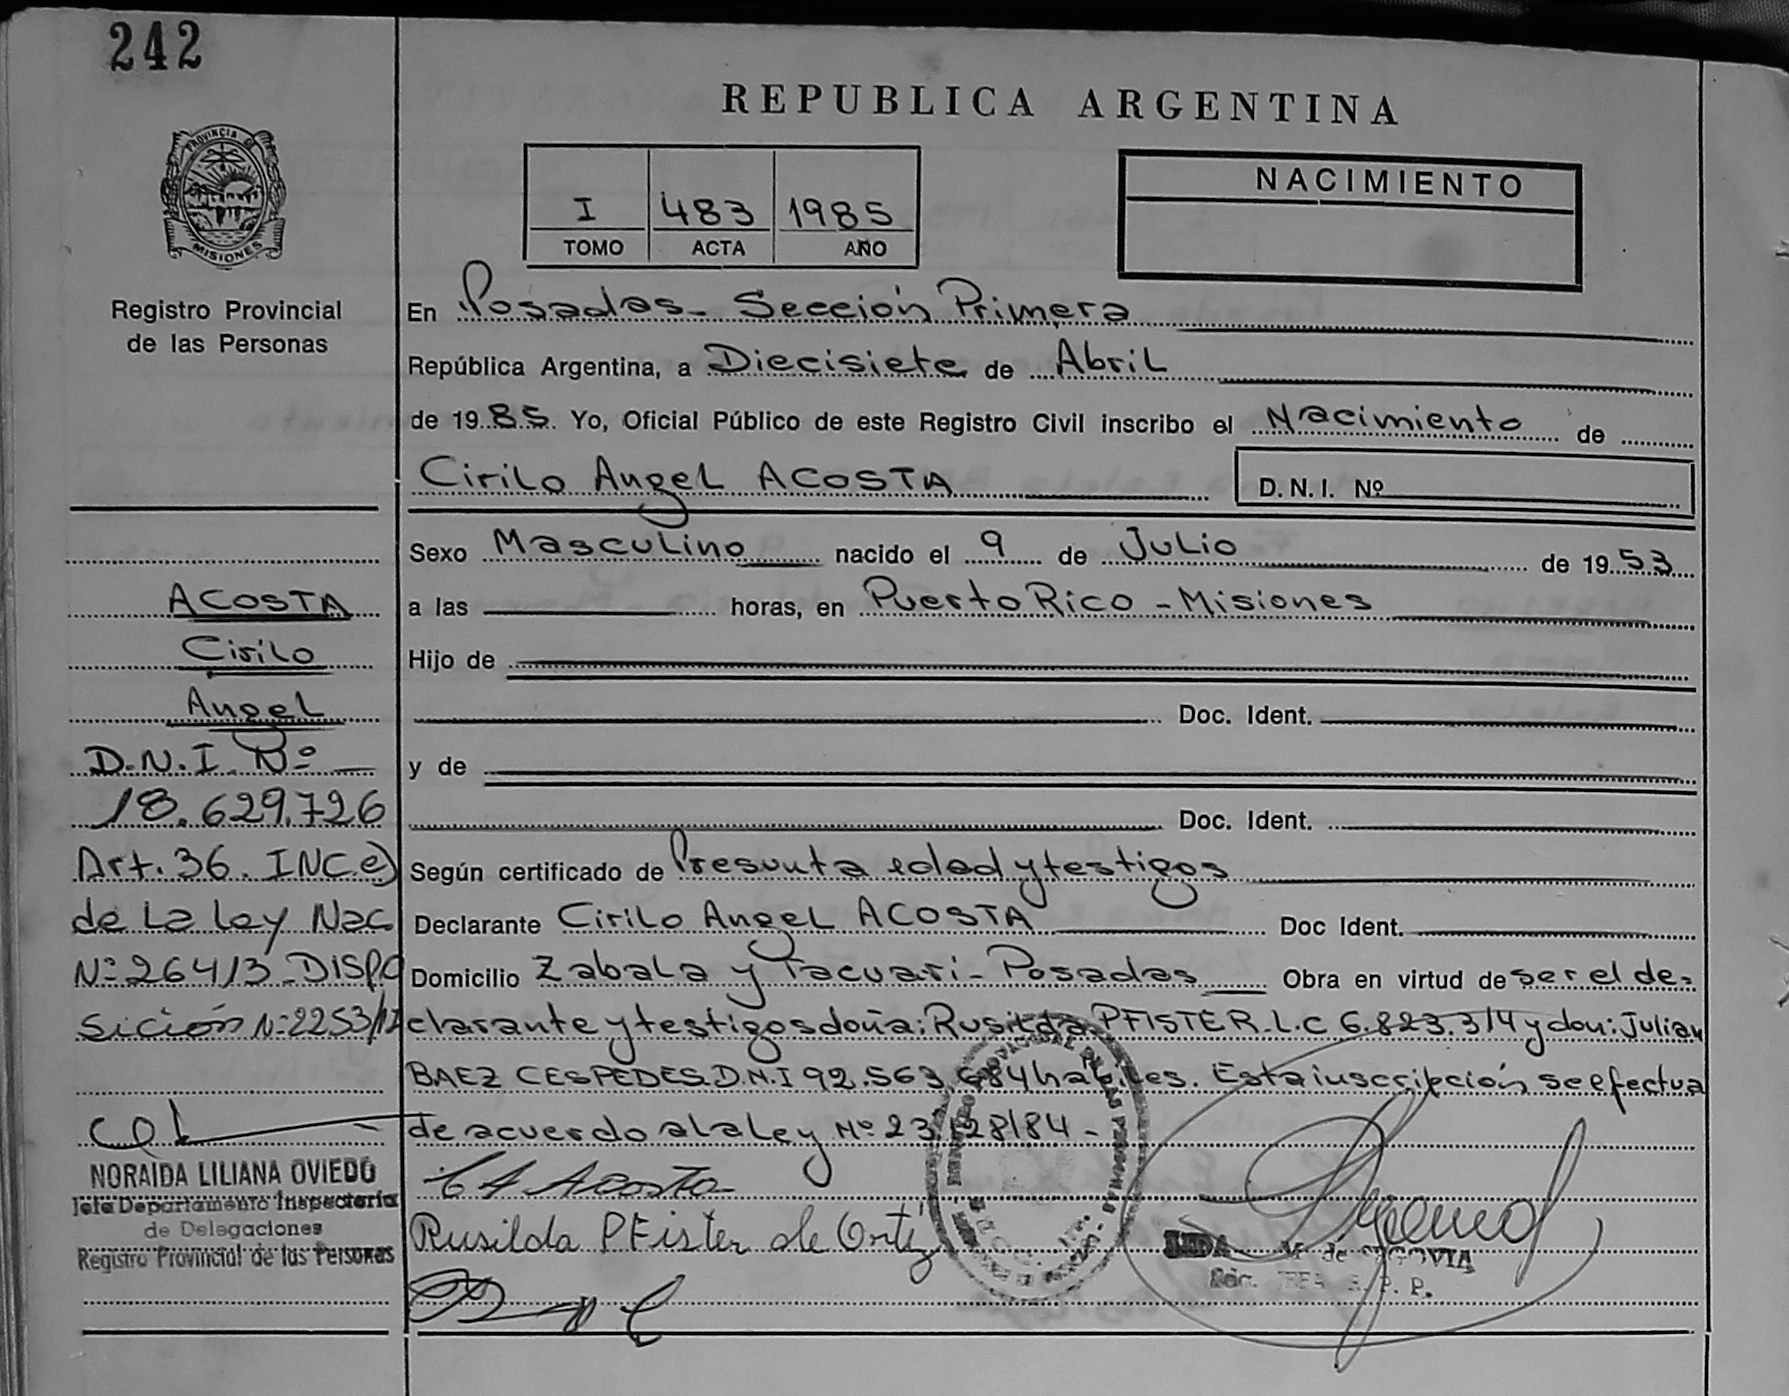 242
REPUBLICA ARGENTINA
PROVINCIA D
MISIONES
Registro Provincial
de las Personas
I 483 1985
TOMO ACTA AÑO
NACIMIENTO
En Posadas - Sección Primera
República Argentina, a Diecisiete de Abril
de 1985. Yo, Oficial Público de este Registro Civil inscribo el Nacimiento de
Cirilo Angel ACOSTA
D.N.I. Nº
Sexo Masculino nacido el 9 de Julio de 1953
a las horas, en Puerto Rico - Misiones
Hijo de
Doc. Ident.
y de
Doc. Ident.
Según certificado de Presunta edad y testigos
Declarante Cirilo Angel ACOSTA Doc Ident.
Domicilio Zabala y Tacuari - Posadas Obra en virtud de ser el de=
clarante y testigos doña: Rusilda PFISTER L.C 6.823.314 y don: Julian
BAEZ CESPEDES. D.N.I 92.563.684 habiles. Esta inscripción se efectua
de acuerdo a la ley Nº 23.128/84 -
C A Acosta
Rusilda PFister de Ortiz
M. de SEGOVIA
ACOSTA
Cirilo
Angel
D.N.I. Nº
18.629.726
Art. 36. INC e)
de La ley Nac
Nº 26413 - DISPO
sición Nº 2253/12
NORAIDA LILIANA OVIEDO
Jefa Departamento Inspectoria
de Delegaciones
Registro Provincial de las Personas